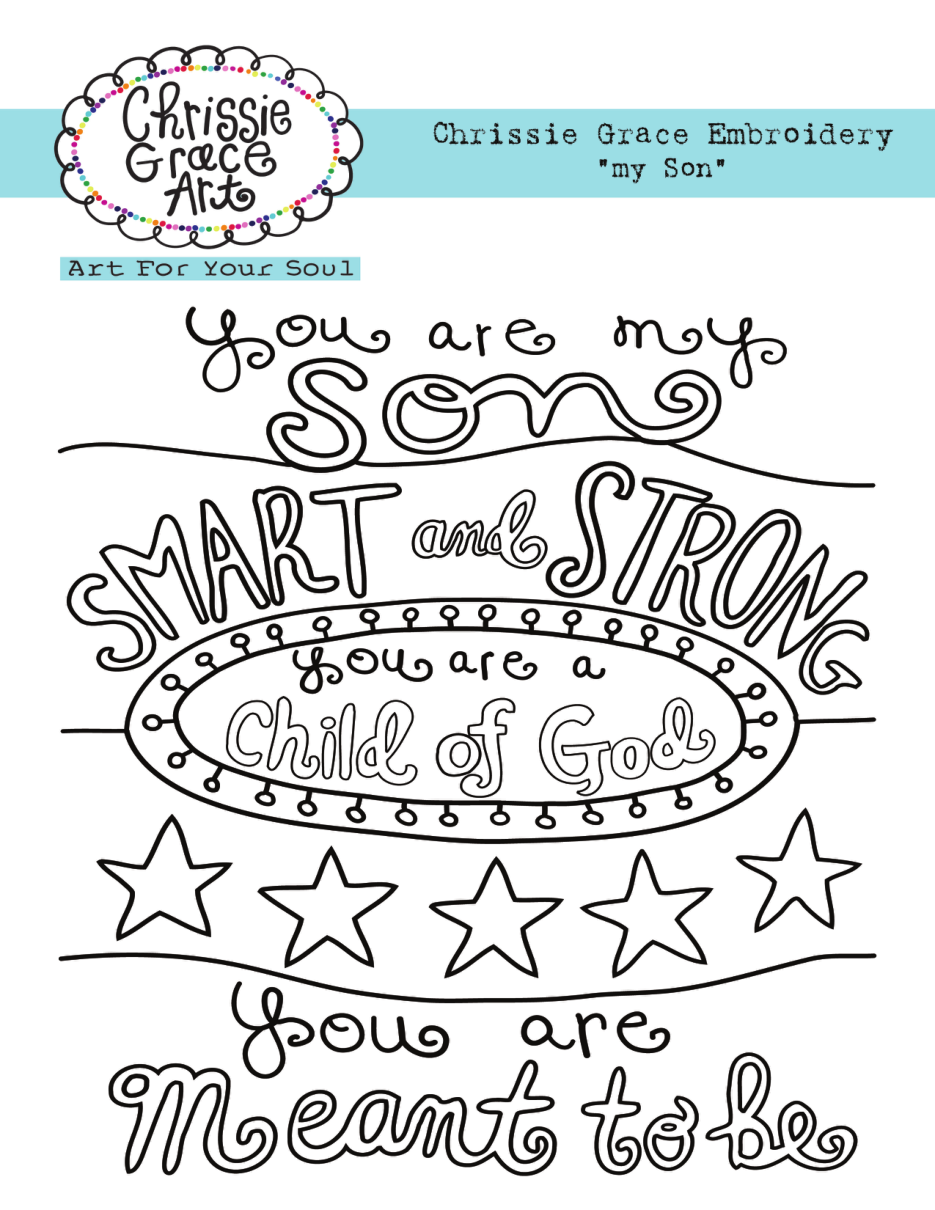 Chrissie
Grace
Art
Chrissie Grace Embroidery
"my Son"
Art For Your Soul
You are my
Son
SMART and STRONG
you are a
Child of God
You are
Meant to be